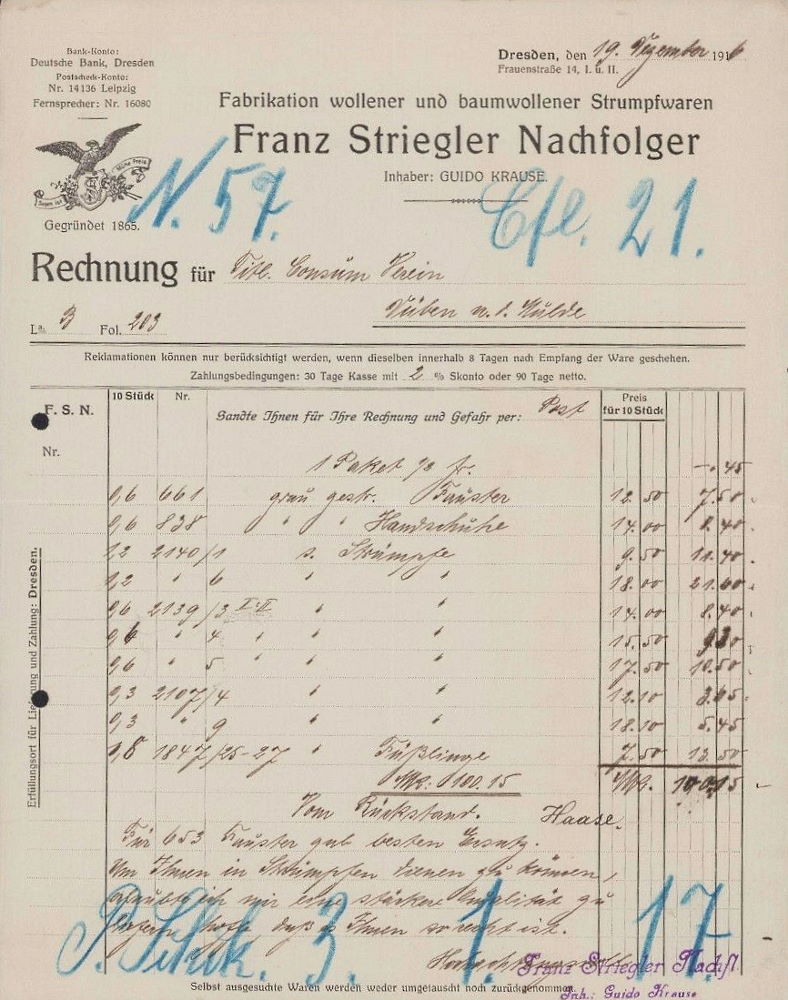 Bank-Konto:
Deutsche Bank, Dresden
Postscheck-Konto:
Nr. 14136 Leipzig
Fernsprecher: Nr. 16080
Gegründet 1865.
Dresden, den 19. Dezember 1916
Frauenstraße 14, I. u. II.
Fabrikation wollener und baumwollener Strumpfwaren
Franz Striegler Nachfolger
Inhaber: GUIDO KRAUSE.
N. 57.
21.
Rechnung für Titl. Consum Verein
Düben a. d. Mulde
La. B Fol. 203
Reklamationen können nur berücksichtigt werden, wenn dieselben innerhalb 8 Tagen nach Empfang der Ware geschehen.
Zahlungsbedingungen: 30 Tage Kasse mit 2 % Skonto oder 90 Tage netto.
F. S. N. 10 Stück Nr. Sandte Ihnen für Ihre Rechnung und Gefahr per: Post Preis für 10 Stück
Nr.
1 Paket -.45
0,6 661 grau gestr. Fäuster 12.50 7.50
0,6 838 " " Handschuhe 14.00 8.40
1,2 2140/1 s. Strümpfe 9.50 11.40
1,2 " 6 " " 18.00 21.60
0,6 2139/3 I-II " " 14.00 8.40
0,6 " 4 " " " 15.50 9.30
0,6 " 5 " " " 17.50 10.50
0,3 2107/4 " " 12.10 3.65
0,3 " 9 " " 18.10 5.45
1,8 1847/25-27 " Füßlinge 7.50 13.50
Mk. 100.15 Mk. 100.15
Vom Rückstand. Haase.
Für 653 Fäuster gab besten Ersatz.
Um Ihnen in Strümpfen dienen zu können,
erlaubte ich mir eine stärkere Qualität zu
liefern hoffe, daß es Ihnen so recht ist.
Hochachtungsvoll
3. 1. 17.
Franz Striegler Nachfl.
Inh.: Guido Krause
Selbst ausgesuchte Waren werden weder umgetauscht noch zurückgenommen.
Erfüllungsort für Lieferung und Zahlung: Dresden.